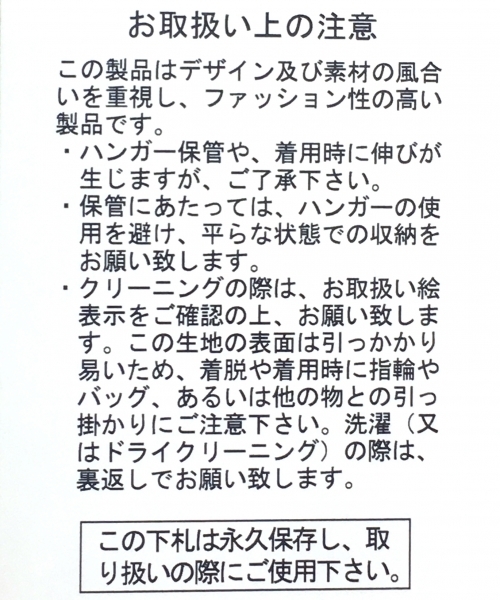 お取扱い上の注意
この製品はデザイン及び素材の風合
いを重視し、ファッション性の高い
製品です。
・ハンガー保管や、着用時に伸びが
生じますが、ご了承下さい。
・保管にあたっては、ハンガーの使
用を避け、平らな状態での収納を
お願い致します。
・クリーニングの際は、お取扱い絵
表示をご確認の上、お願い致しま
す。この生地の表面は引っかかり
易いため、着脱や着用時に指輪や
バッグ、あるいは他の物との引っ
掛かりにご注意下さい。洗濯（又
はドライクリーニング）の際は、
裏返しでお願い致します。
この下札は永久保存し、取
り扱いの際にご使用下さい。